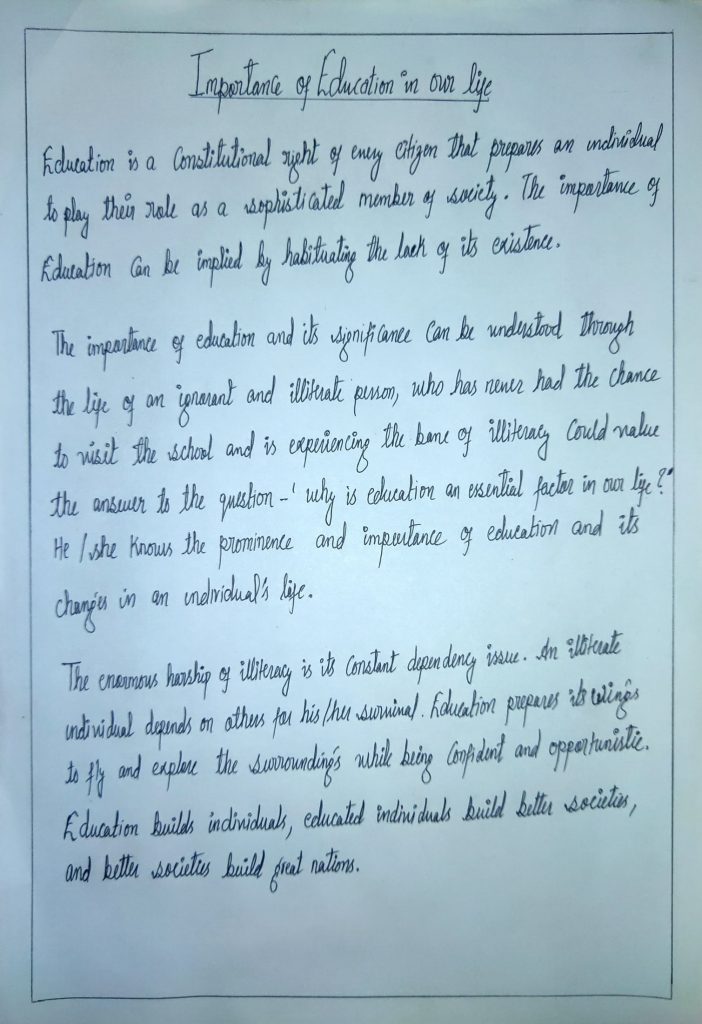 Importance of Education in our life
Education is a Constitutional right of every citizen that prepares an individual
to play their role as a sophisticated member of society. The importance of
Education Can be implied by habituating the lack of its existence.
The importance of education and its significance Can be understood through
the life of an ignorant and illiterate person, who has never had the chance
to visit the school and is experiencing the bane of illiteracy Could value
the answer to the question - ' why is education an essential factor in our life ?"
He / she knows the prominence and importance of education and its
changes in an individual's life.
The enormous harship of illiteracy is its constant dependency issue. An illiterate
individual depends on others for his/her survival. Education prepares its wing's
to fly and explore the surrounding's while being Confident and opportunistic.
Education builds individuals, educated individuals build better societies,
and better societies build great nations.